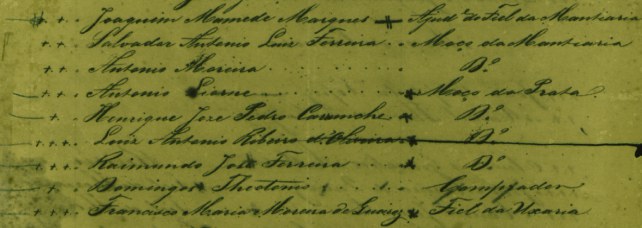 Joaquim Mamede Marques Ajud.e do Fiel da Mantiaria
Salvador Antonio Luiz Ferreira . . Moço da Mantiaria
Antonio Moreira . . . . . . . . D.º
Antonio Moço da Prata.
Henrique Jose Pedro D.º
Luiz Antonio Ribeiro d'Oliveira D.º
Raimundo José Ferreira . . . . D.º
Domingos Theotonio . . . .
Francisco Maria Moreira de Fiel da Uxaria